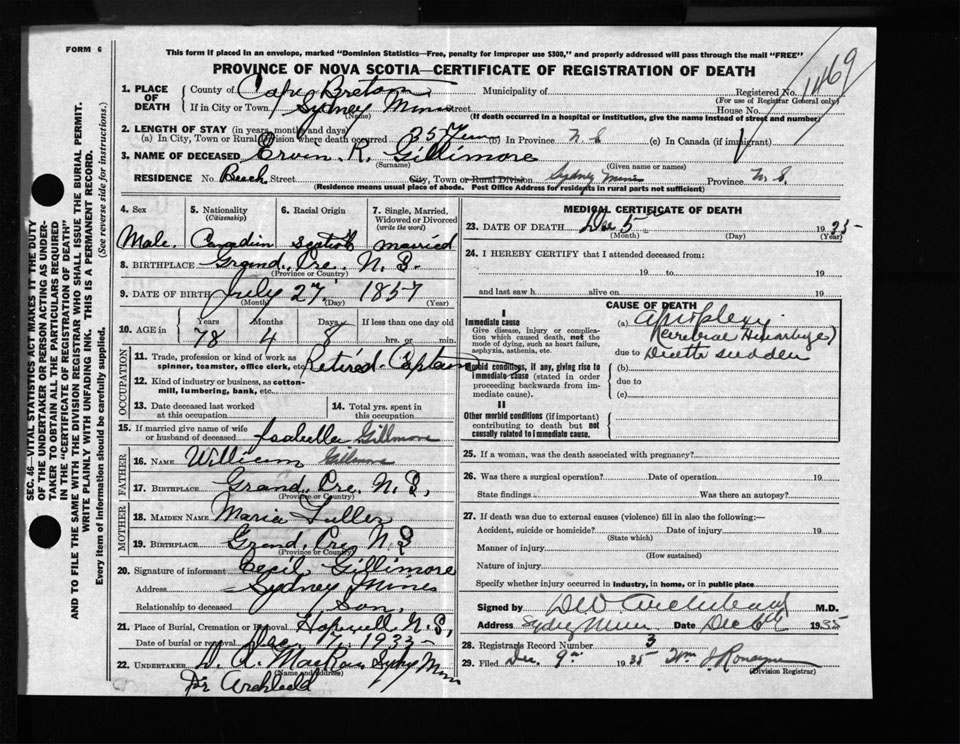 FORM 6
This form if placed in an envelope, marked "Dominion Statistics—Free, penalty for improper use $300," and properly addressed will pass through the mail "FREE"
PROVINCE OF NOVA SCOTIA—CERTIFICATE OF REGISTRATION OF DEATH
1469
1. PLACE OF DEATH
County of Cape Breton Municipality of Registered No.
(For use of Registrar General only)
If in City or Town Sydney Mines Street House No.
(Name) (If death occurred in a hospital or institution, give the name instead of street and number)
2. LENGTH OF STAY (in years, months and days)
(a) In City, Town or Rural Division where death occurred 35 Years (b) In Province N. S. (c) In Canada (if immigrant)
3. NAME OF DECEASED Ervin R. Gillimore
(Surname) (Given name or names)
RESIDENCE No. Beach Street City, Town or Rural Division Sydney Mines Province N. S.
(Residence means usual place of abode. Post Office Address for residents in rural parts not sufficient)
4. Sex 5. Nationality (Citizenship) 6. Racial Origin 7. Single, Married, Widowed or Divorced (write the word)
Male. Canadian Scotich married
8. BIRTHPLACE Grand Pre. N. S.
(Province or Country)
9. DATE OF BIRTH July 27 1857
(Month) (Day) (Year)
10. AGE in Years Months Days If less than one day old
78 4 8 hrs. or min.
OCCUPATION
11. Trade, profession or kind of work as spinner, teamster, office clerk, etc. Retired Captain
12. Kind of industry or business, as cotton-mill, lumbering, bank, etc.
13. Date deceased last worked at this occupation
14. Total yrs. spent in this occupation
15. If married give name of wife or husband of deceased Isabella Gillmore
FATHER
16. NAME William Gillmore
17. BIRTHPLACE Grand Pre N. S.
(Province or Country)
MOTHER
18. MAIDEN NAME Maria Fuller
19. BIRTHPLACE Grand Pre N. S
(Province or Country)
20. Signature of informant Cecil Gillimore
Address Sydney Mines
Relationship to deceased Son,
21. Place of Burial, Cremation or Removal Hopewell N. S,
Date of burial or removal Dec 7, 1935
22. UNDERTAKER D. A. Sydney Min
(Name and address)
Dr Archibald
MEDICAL CERTIFICATE OF DEATH
23. DATE OF DEATH Dec 5 1935
(Month) (Day) (Year)
24. I HEREBY CERTIFY that I attended deceased from:
19 to 19
and last saw h alive on 19
CAUSE OF DEATH
I
Immediate cause
Give disease, injury or complication which caused death, not the mode of dying, such as heart failure, asphyxia, asthenia, etc.
(a) Apoplexy
(Cerebral
due to Death sudden
Morbid conditions, if any, giving rise to immediate cause (stated in order proceeding backwards from immediate cause).
(b)
due to
(c)
II
Other morbid conditions (if important) contributing to death but not causally related to immediate cause.
25. If a woman, was the death associated with pregnancy?
26. Was there a surgical operation? Date of operation 19
State findings Was there an autopsy?
27. If death was due to external causes (violence) fill in also the following:—
Accident, suicide or homicide? Date of injury 19
(State which)
Manner of injury
(How sustained)
Nature of injury
Specify whether injury occurred in industry, in home, or in public place
Signed by D W Archibald M.D.
Address Sydney Mines Date Dec 6th 1935
28. Registrars Record Number 3
29. Filed Dec. 9th 1935 Wm
(Division Registrar)
SEC. 46—VITAL STATISTICS ACT MAKES IT THE DUTY
OF THE UNDERTAKER OR PERSON ACTING AS UNDER-
TAKER TO OBTAIN ALL THE PARTICULARS REQUIRED
IN THE "CERTIFICATE OF REGISTRATION OF DEATH"
AND TO FILE THE SAME WITH THE DIVISION REGISTRAR WHO SHALL ISSUE THE BURIAL PERMIT.
WRITE PLAINLY WITH UNFADING INK. THIS IS A PERMANENT RECORD.
Every item of information should be carefully supplied. (See reverse side for instructions.)